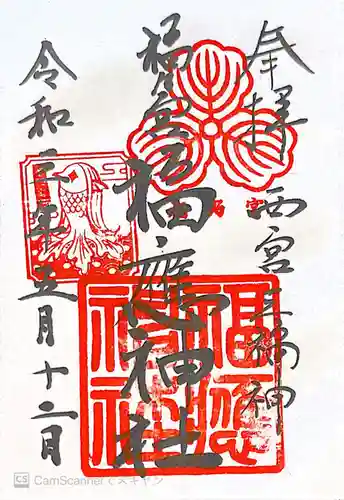 奉拝 西宮三福神
福應神社
令和三年五月十二日
福應
神社
CS CamScannerでスキャン